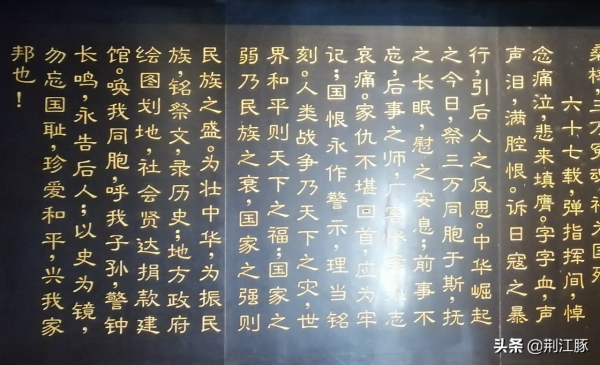 桑梓,三万冤魂,为国死
六十七载,弹指挥间,悼
念痛泣,悲来填膺。字字血,声
声泪,满腔恨。诉日寇之暴
行,引后人之反思。中华崛起
之今日,祭三万同胞于斯,抚
之长眠,慰之安息;前事不
忘,后事之师,厂窖惨案,志
哀痛。家仇不堪回首,应为牢
记;国恨永作警示,理当铭
刻。人类战争乃天下之灾,世
界和平则天下之福;国家之
弱乃民族之衰,国家之强则
民族之盛。为壮中华,为振民
族,铭祭文,录历史;地方政府
绘图划地,社会贤达捐款建
馆。唤我同胞,呼我子孙,警钟
长鸣,永告后人;以史为镜,
勿忘国耻,珍爱和平,兴我家
邦也!
头条 @荆江豚